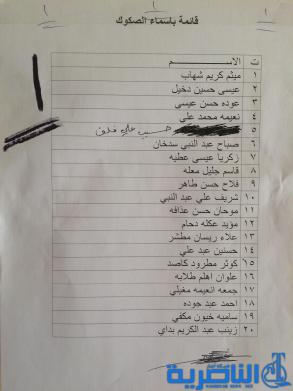 قائمة باسماء الصكوك
ت الاســـم
١ ميثم كريم شهاب
٢ عيسى حسين دخيل
٣ عوده حسن عيسى
٤ نعيمه محمد علي
٥ حسيب علي
٦ صباح عبد النبي سدخان
٧ زكريا عيسى عطيه
٨ قاسم جليل معله
٩ فلاح حسن طاهر
١٠ شريف علي عبد النبي
١١ موحان حسن عذافه
١٢ مؤيد عكله دحام
١٣ علاء ريسان مطشر
١٤ حسنين عبد علي
١٥ كوثر مطرود كاصد
١٦ علوان اهلم طلابه
١٧ جمعه انعيمه مغبلي
١٨ احمد عبد جوده
١٩ ساميه خيون مكفي
٢٠ زينب عبد الكريم بداي
الناصرية